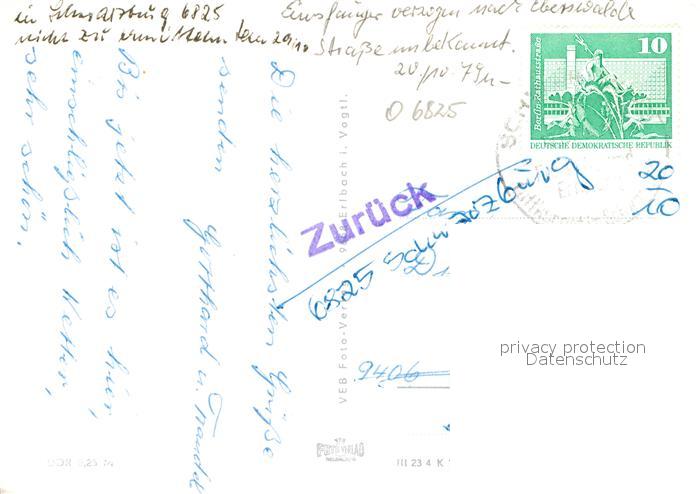 in Schwarzburg 6825
nicht zu ermitteln
Empfänger verzogen nach Eberswalde
Straße unbekannt.
20.10.79
O 6825
10
Berlin, Rathausstraße
DEUTSCHE DEMOKRATISCHE REPUBLIK
20
10
Zurück
6825 Schwarzburg
9406
Die herzlichsten Grüße
senden
Gotthard u. Traudl
Bis jetzt ist es hier,
einschließlich Wetter,
sehr schön.
Erlbach i. Vogtl.
VEB Foto-Ver
III 23 4 K
privacy protection
Datenschutz